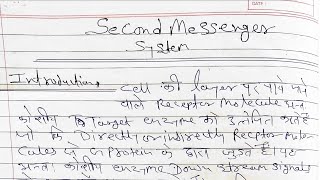 DATE:
Second Messenger
System
Introduction Cell की layer पर पाये जाने
वाले Receptor Molecule
कोशीय Target enzyme को उत्तेजित करते
जो कि Directly or indirectly Receptor Mole-
cules से G Protein के द्वारा जुड़ते हैं यह
अन्तः कोशीय enzyme Down Stream Signals